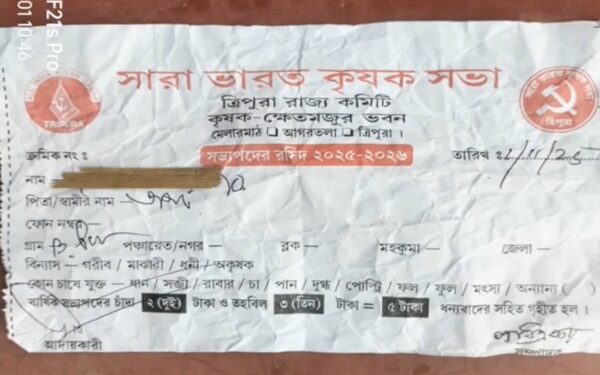 সারা ভারত কৃষক সভা
ত্রিপুরা রাজ্য কমিটি
কৃষক-ক্ষেতমজুর ভবন
মেলারমাঠ ❑ আগরতলা ❑ ত্রিপুরা ।
TRIPURA
ত্রিপুরা
ক্রমিক নং ঃ
সভ্যপদের রসিদ ২০২৫-২০২৬
তারিখ ঃ 1/11/25
নাম
পিতা/স্বামীর নাম –
ফোন নম্বর –
গ্রাম পঞ্চায়েত/নগর – ব্লক – মহকুমা – জেলা –
বিন্যাস – গরীব / মাঝারী / ধনী / অকৃষক
কোন চাষে যুক্ত – ধান / সব্জী / রাবার / চা / পান / দুগ্ধ / পোল্ট্রি / ফল / ফুল / মৎস্য / অন্যান্য ( )
বার্ষিক সভ্যপদের চাঁদা ২ (দুই) টাকা ও তহবিল ৩ (তিন) টাকা = ৫ টাকা ধন্যবাদের সহিত গৃহীত হল ।
আদায়কারী
সম্পাদক
F21s Pro
011046